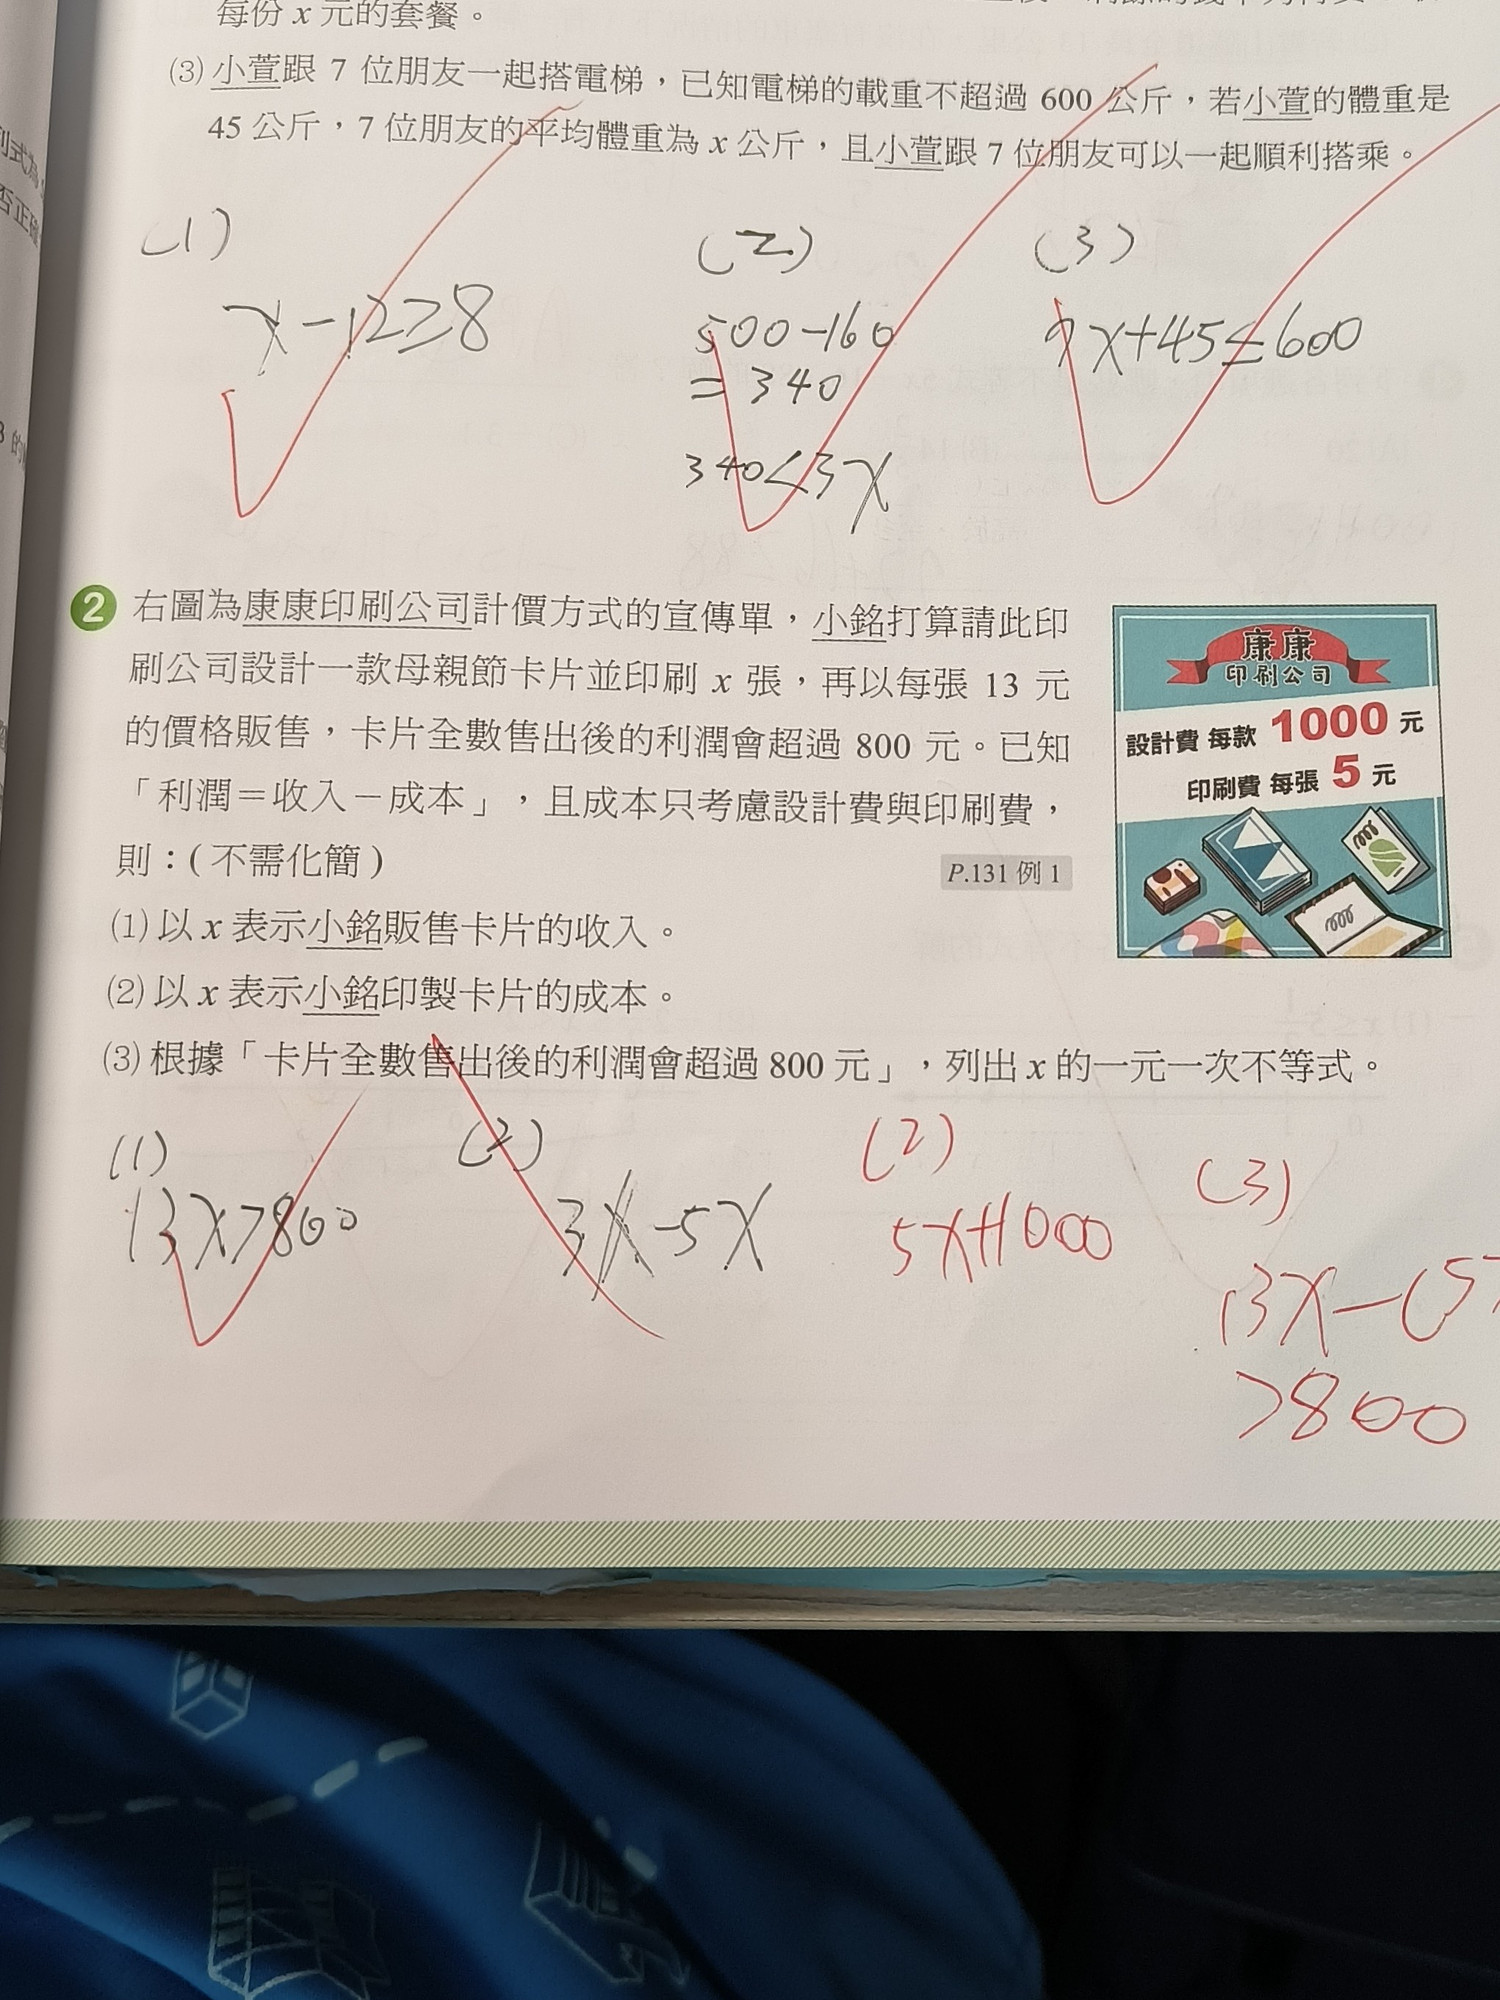 每份 x 元的套餐。
(3) 小萱跟 7 位朋友一起搭電梯，已知電梯的載重不超過 600 公斤，若小萱的體重是
45 公斤，7 位朋友的平均體重為 x 公斤，且小萱跟 7 位朋友可以一起順利搭乘。
(1)
x-12≥8
(2)
500-160
=340
340<3x
(3)
7x+45≤600
2 右圖為康康印刷公司計價方式的宣傳單，小銘打算請此印
刷公司設計一款母親節卡片並印刷 x 張，再以每張 13 元
的價格販售，卡片全數售出後的利潤會超過 800 元。已知
「利潤＝收入－成本」，且成本只考慮設計費與印刷費，
則：(不需化簡)
P.131 例 1
(1) 以 x 表示小銘販售卡片的收入。
(2) 以 x 表示小銘印製卡片的成本。
(3) 根據「卡片全數售出後的利潤會超過 800 元」，列出 x 的一元一次不等式。
康康
印刷公司
設計費 每款 1000 元
印刷費 每張 5 元
(1)
13x>800
(2)
3x-5x
(2)
5x+1000
(3)
13x-(5x
>800